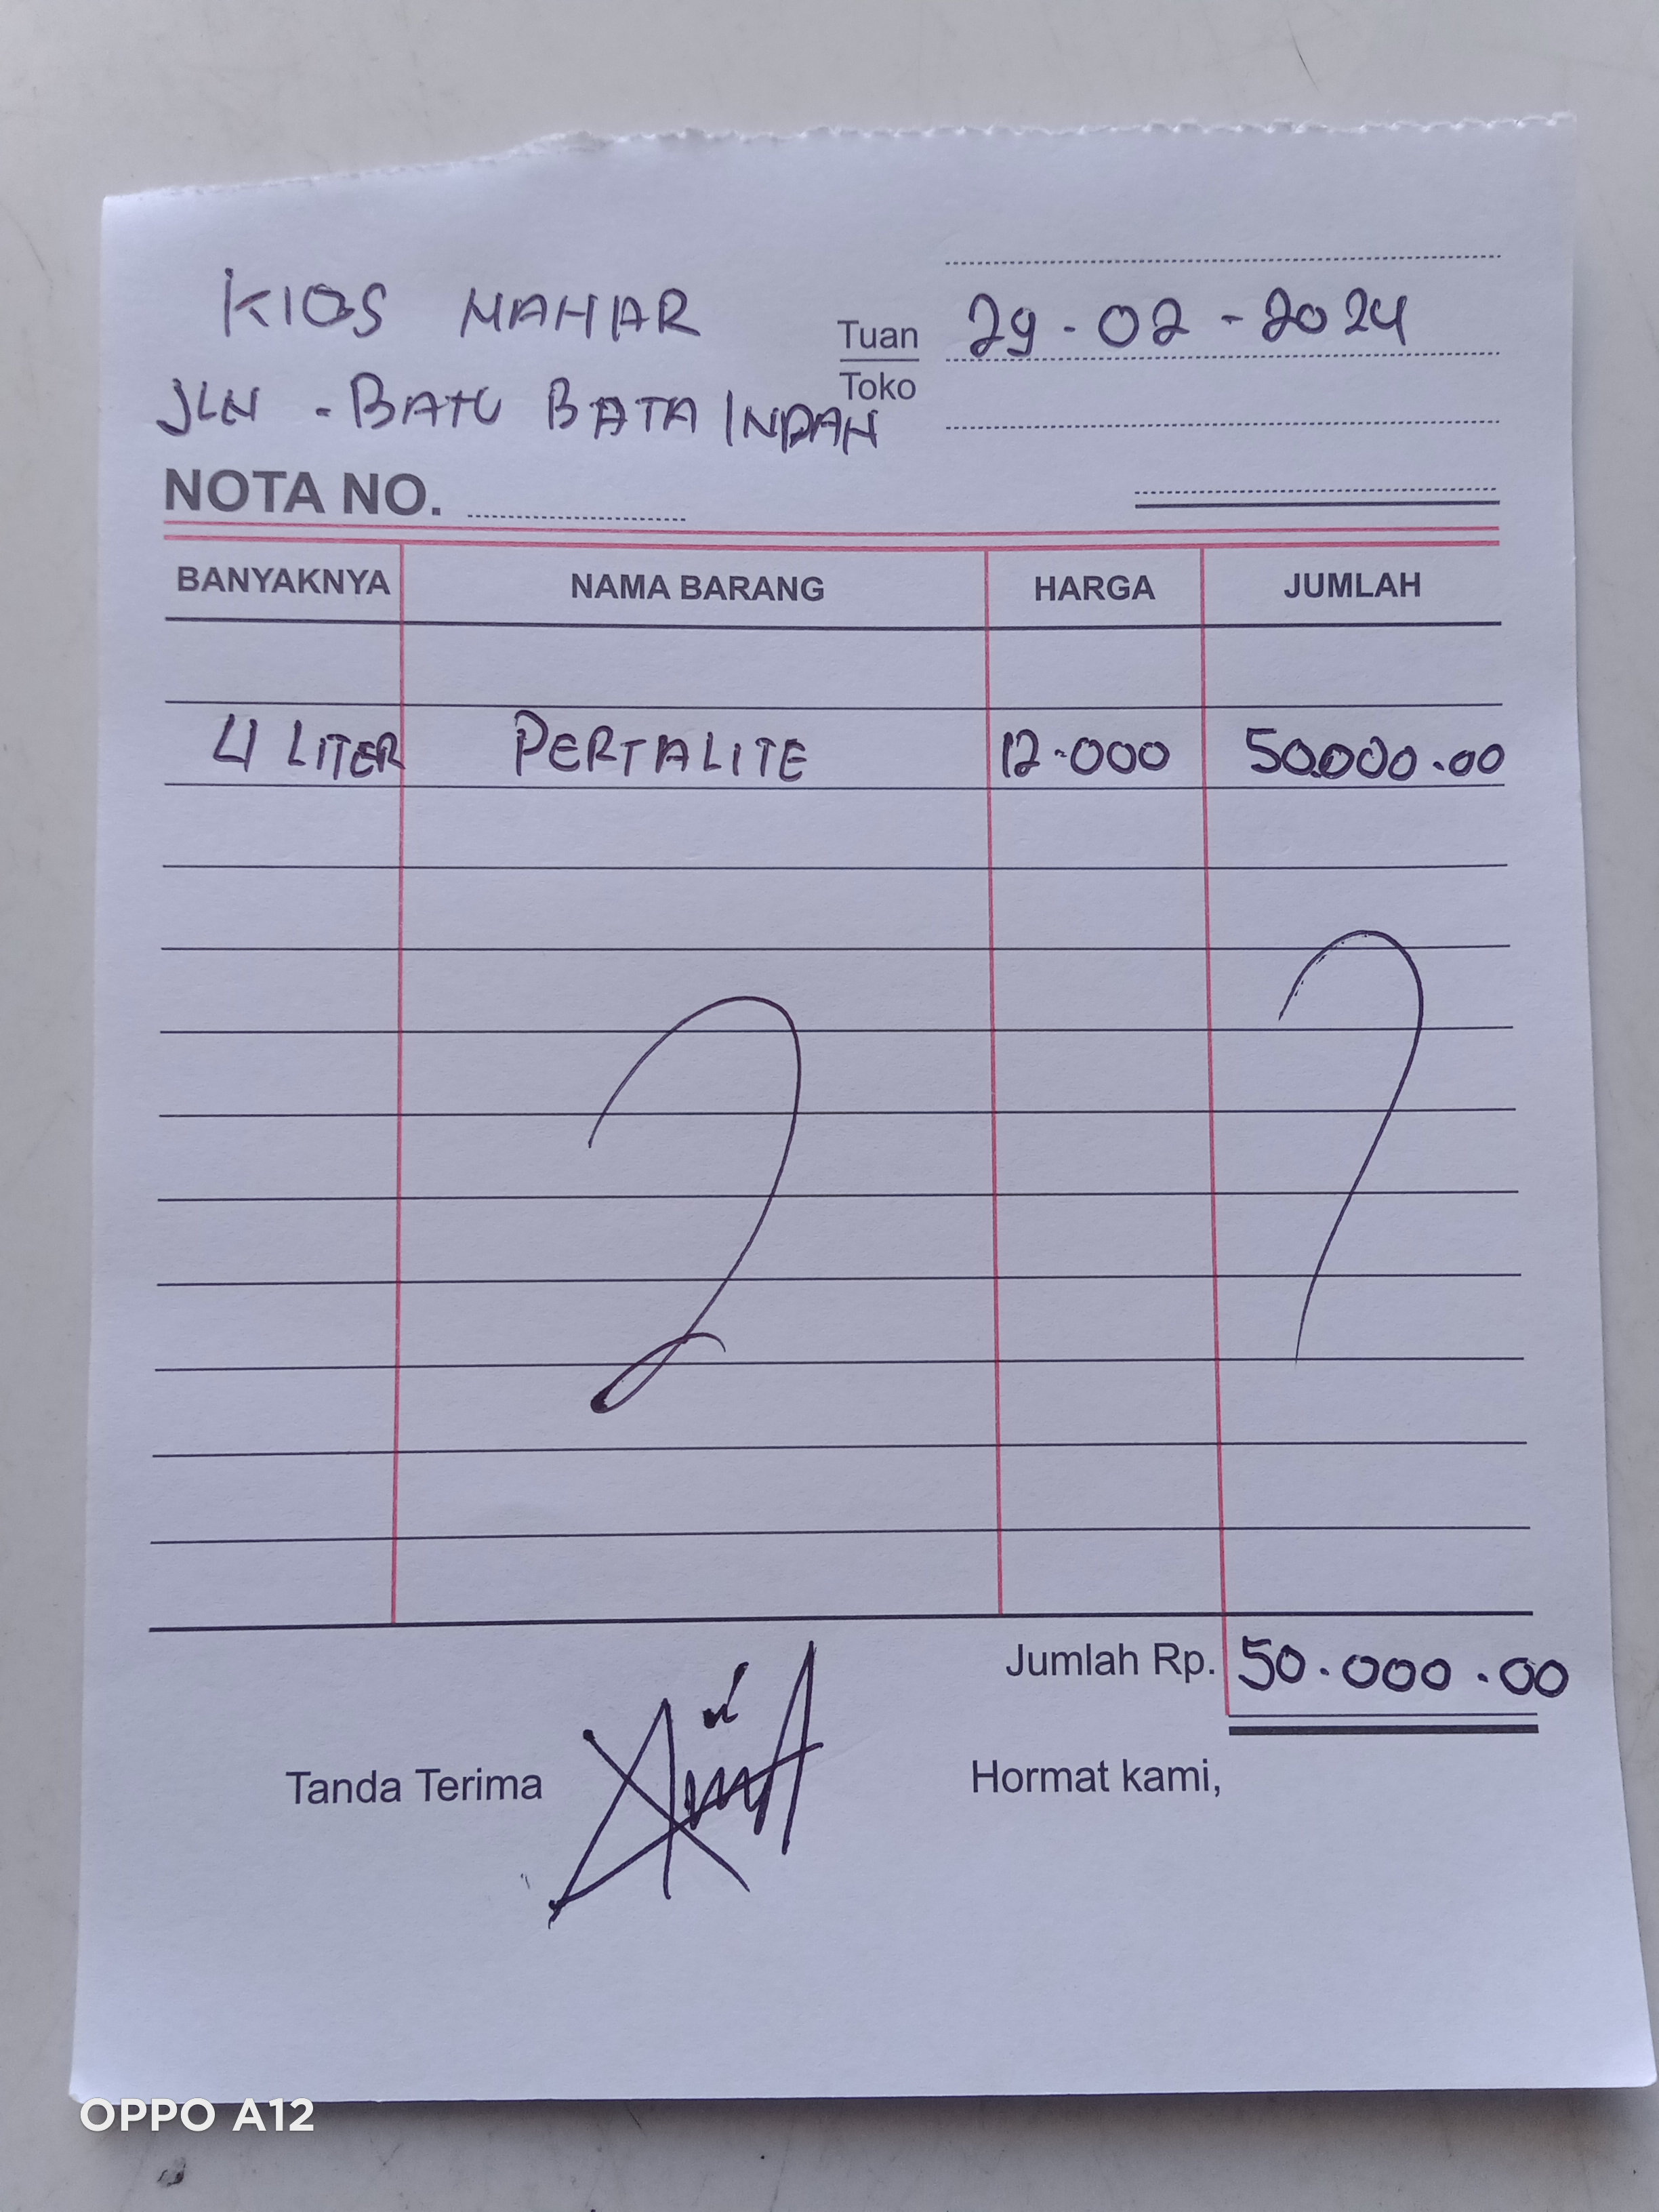 KIOS MAHAR
Tuan 29-02-2024
Toko
JLN - BATU BATA INDAH
NOTA NO.
BANYAKNYA NAMA BARANG HARGA JUMLAH
4 LITER PERTALITE 12.000 50.000.00
Jumlah Rp. 50.000.00
Tanda Terima Hormat kami,
OPPO A12